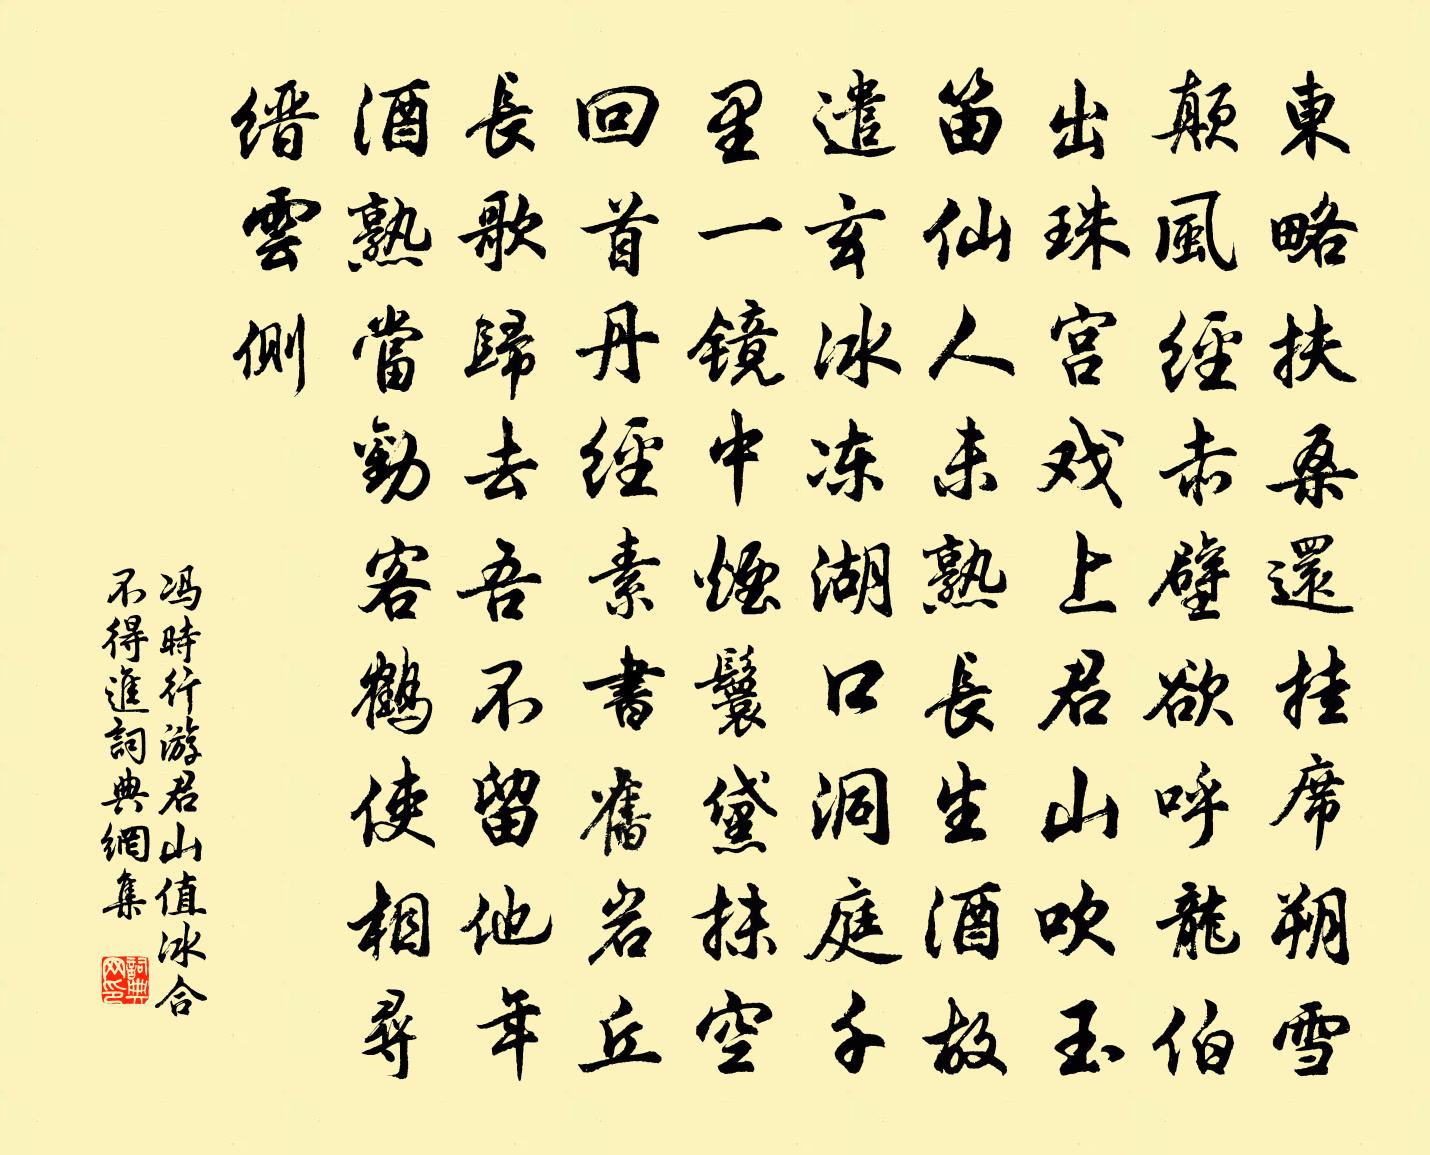 東略扶桑還挂席朔雪
颠風經赤壁欲呼龍伯
出珠宫戏上君山吹玉
笛仙人未熟長生酒故
遣玄冰冻湖口洞庭千
里一镜中煙鬟黛抹空
回首丹經素書舊岩丘
長歌歸去吾不留他年
酒熟當勸客鶴使相尋
缙雲側
冯時行游君山值冰合
不得進詞典網集
詞典
网印